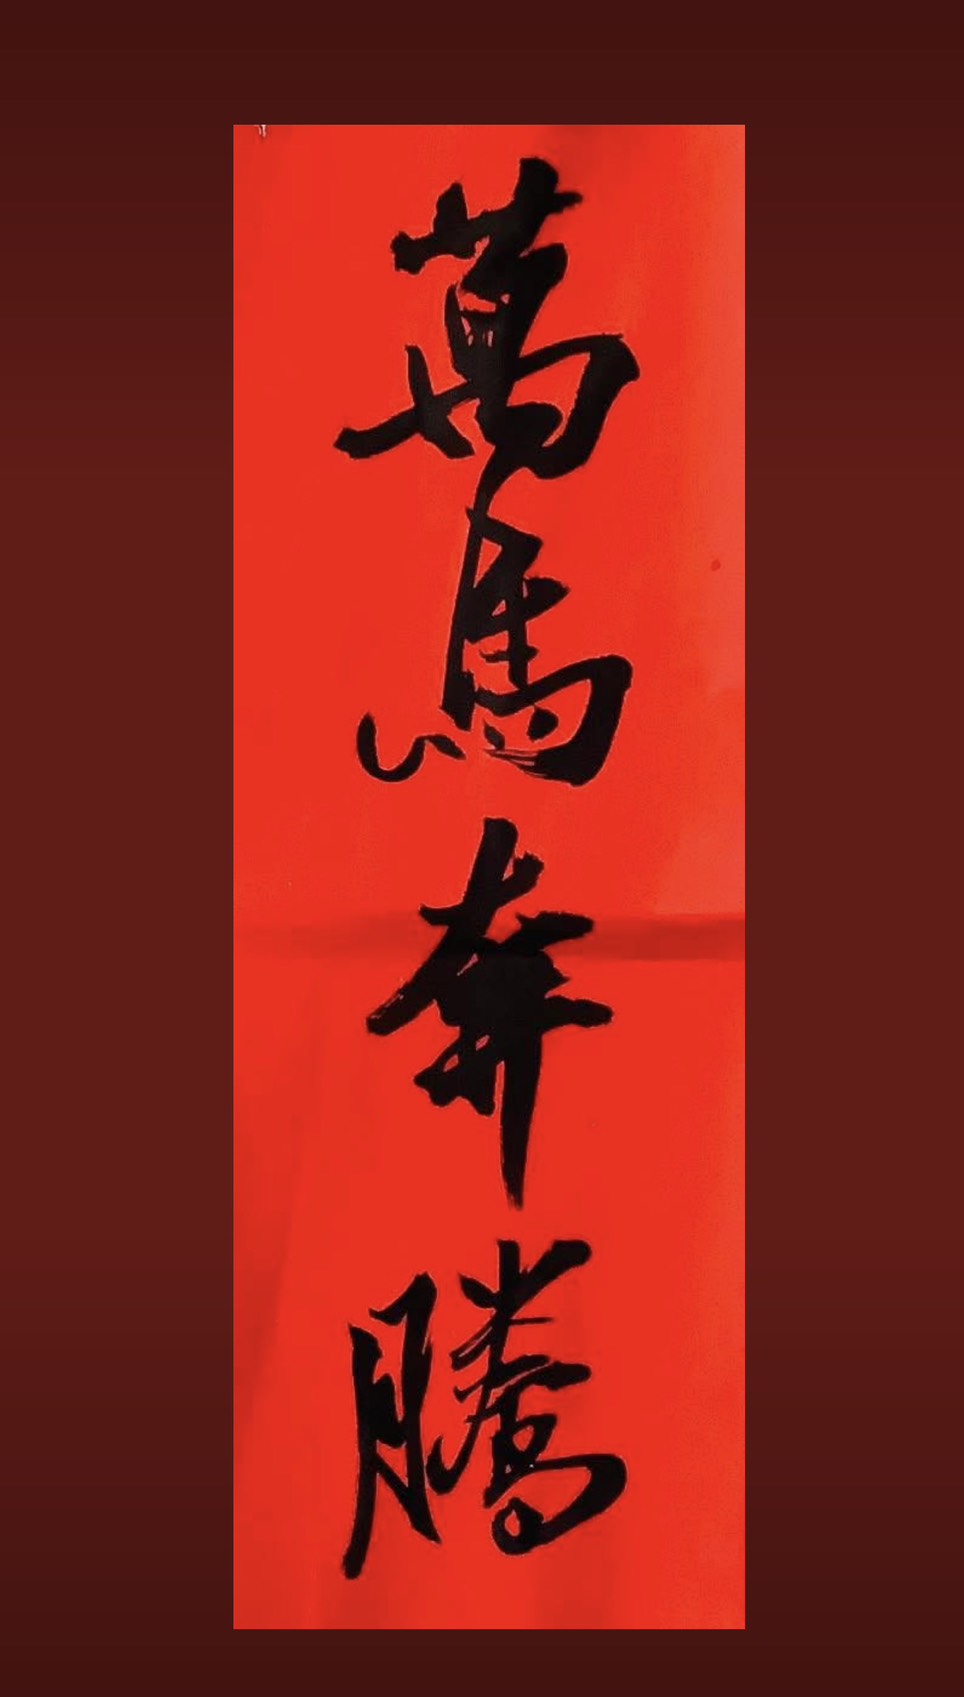 萬馬奔騰